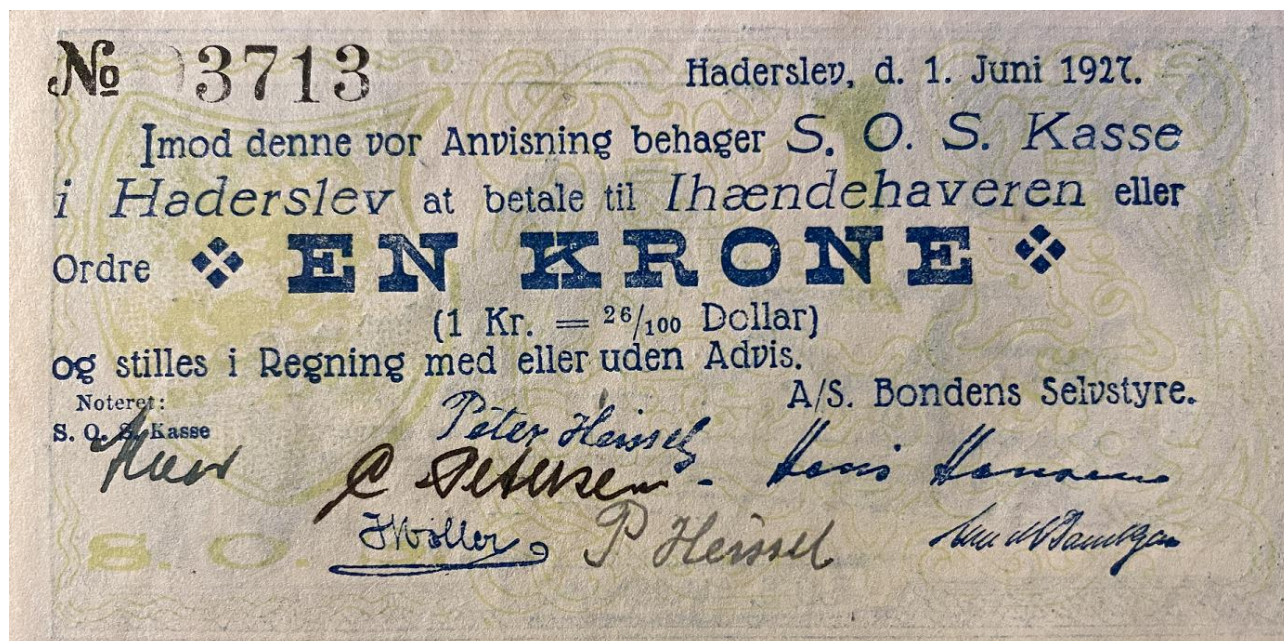 № 3713
Haderslev, d. 1. Juni 1927.
Imod denne vor Anvisning behager S. O. S. Kasse
i Haderslev at betale til Ihændehaveren eller
Ordre EN KRONE
(1 Kr. = 26/100 Dollar)
og stilles i Regning med eller uden Advis.
Noteret:
A/S. Bondens Selvstyre.
S. O. S. Kasse
Peter Heissel
C Petersen Hans Hansen
P Heissel
S. O.